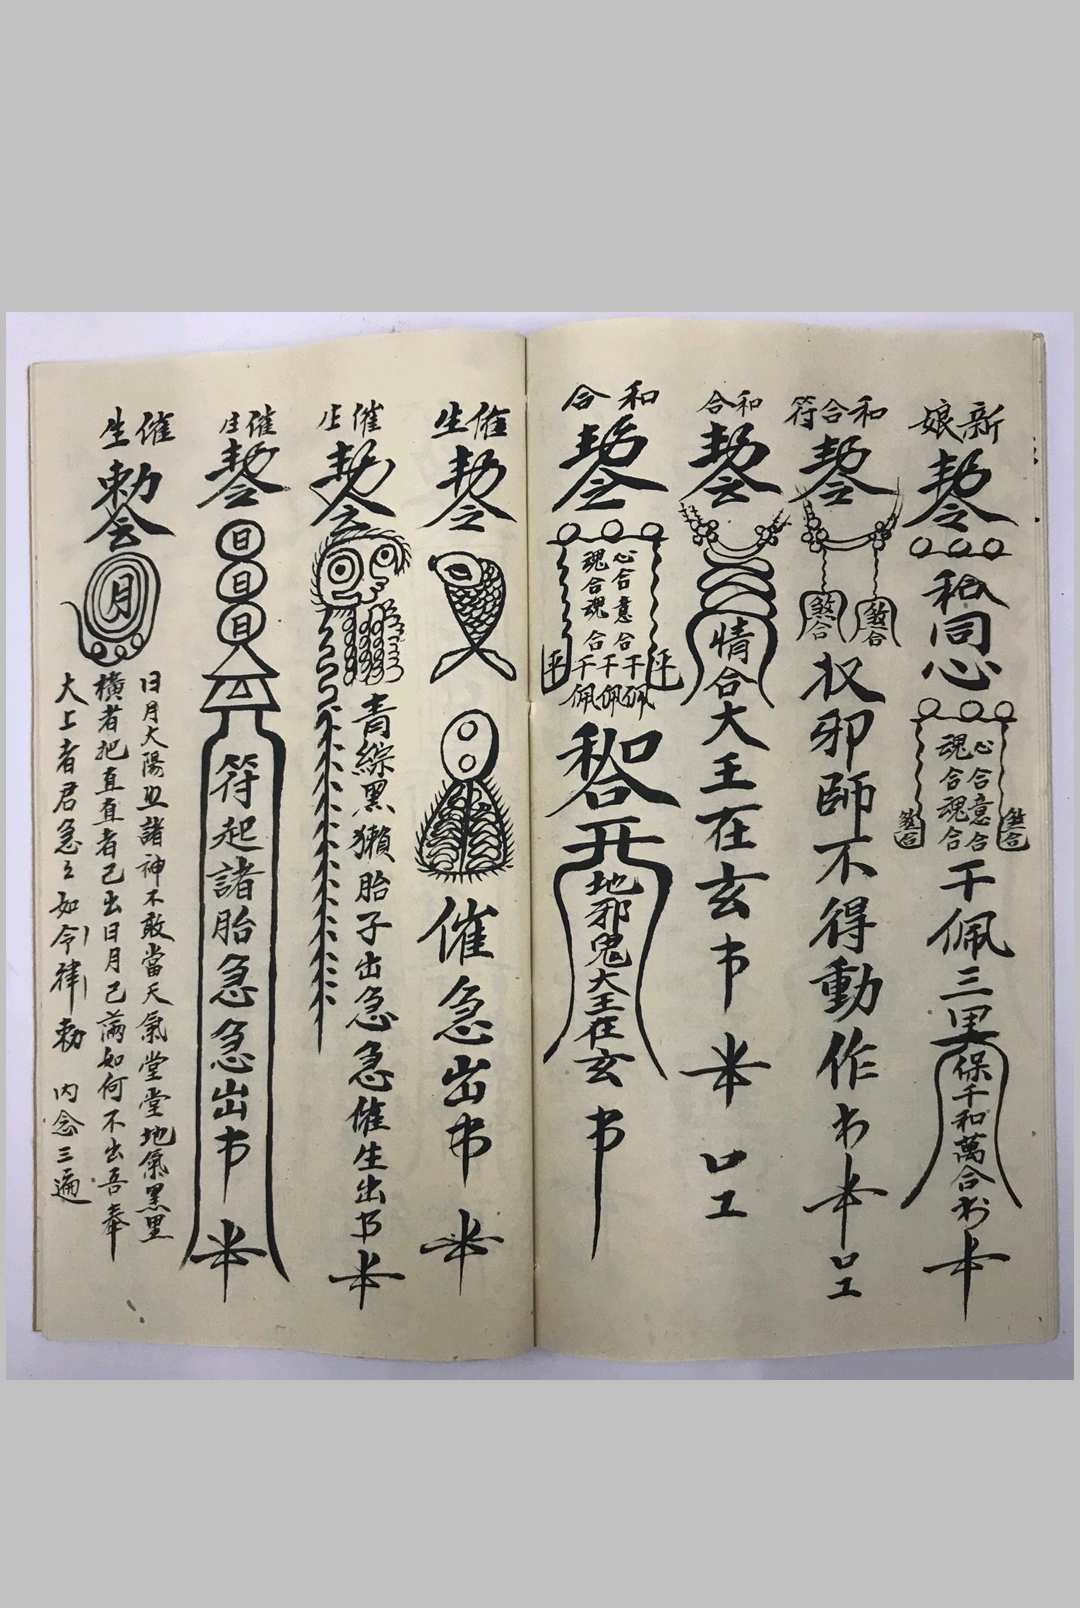 新娘
敕令
和同心
心合意合
魂合魂合
煞合
煞合
干佩三里
保千和萬合
和合符
敕令
煞合
煞合
邪師不得動作
和合
敕令
情合大王在玄
和合
敕令
心合意合
魂合魂合
干佩
干佩
干佩
和合
地邪鬼大王在玄
催生
敕令
催急出
催生
敕令
青綜黑獺胎子出急急催生出
催生
敕令
日
日
日
符起諸胎急急出
催生
敕令
月
日月太陽丑諸神不敢當天氣堂堂地氣黑里
橫者把直直者已出日月已滿如何不出吾奉
大上者君急之如令律敕 内念三遍